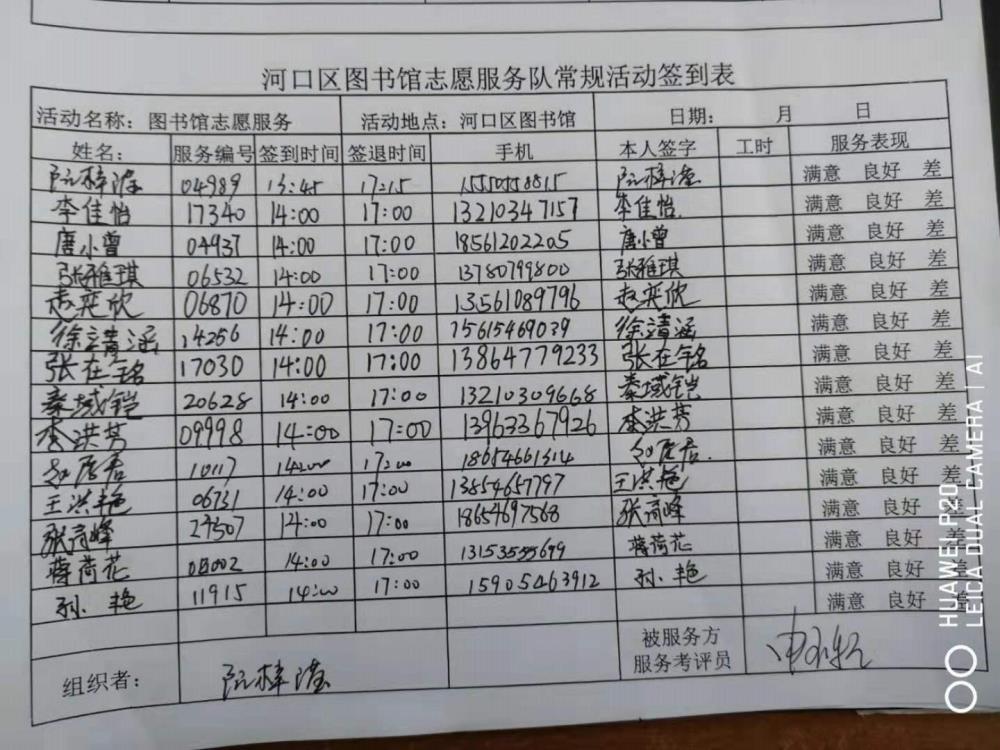 河口区图书馆志愿服务队常规活动签到表
活动名称：图书馆志愿服务 活动地点：河口区图书馆 日期： 月 日
姓名： 服务编号 签到时间 签退时间 手机 本人签字 工时 服务表现
阮梓滢 04989 13:45 17:15 15550558815 阮梓滢 满意 良好 差
李佳怡 17340 14:00 17:00 13210347157 李佳怡 满意 良好 差
唐小曾 04937 14:00 17:00 18561202205 唐小曾 满意 良好 差
张雅琪 06532 14:00 17:00 13780799800 张雅琪 满意 良好 差
赵奕欣 06870 14:00 17:00 13561089796 赵奕欣 满意 良好 差
徐清涵 14256 14:00 17:00 15615469039 徐清涵 满意 良好 差
张在铭 17030 14:00 17:00 13864779233 张在铭 满意 良好 差
秦域铠 20628 14:00 17:00 13210309668 秦域铠 满意 良好 差
李洪芳 09998 14:00 17:00 13963367926 李洪芳 满意 良好 差
10117 14:00 17:00 18654661314 满意 良好 差
王洪艳 06731 14:00 17:00 13854657797 王洪艳 满意 良好 差
张荷峰 27507 14:00 17:00 18654697568 张荷峰 满意 良好 差
蒋荷花 14:00 17:00 13153555699 蒋荷花 满意 良好 差
孙艳 11915 14:00 17:00 15905463912 孙艳 满意 良好 差
满意 良好 差
组织者： 阮梓滢 被服务方
服务考评员
HUAWEI P20
LEICA DUAL CAMERA | AI